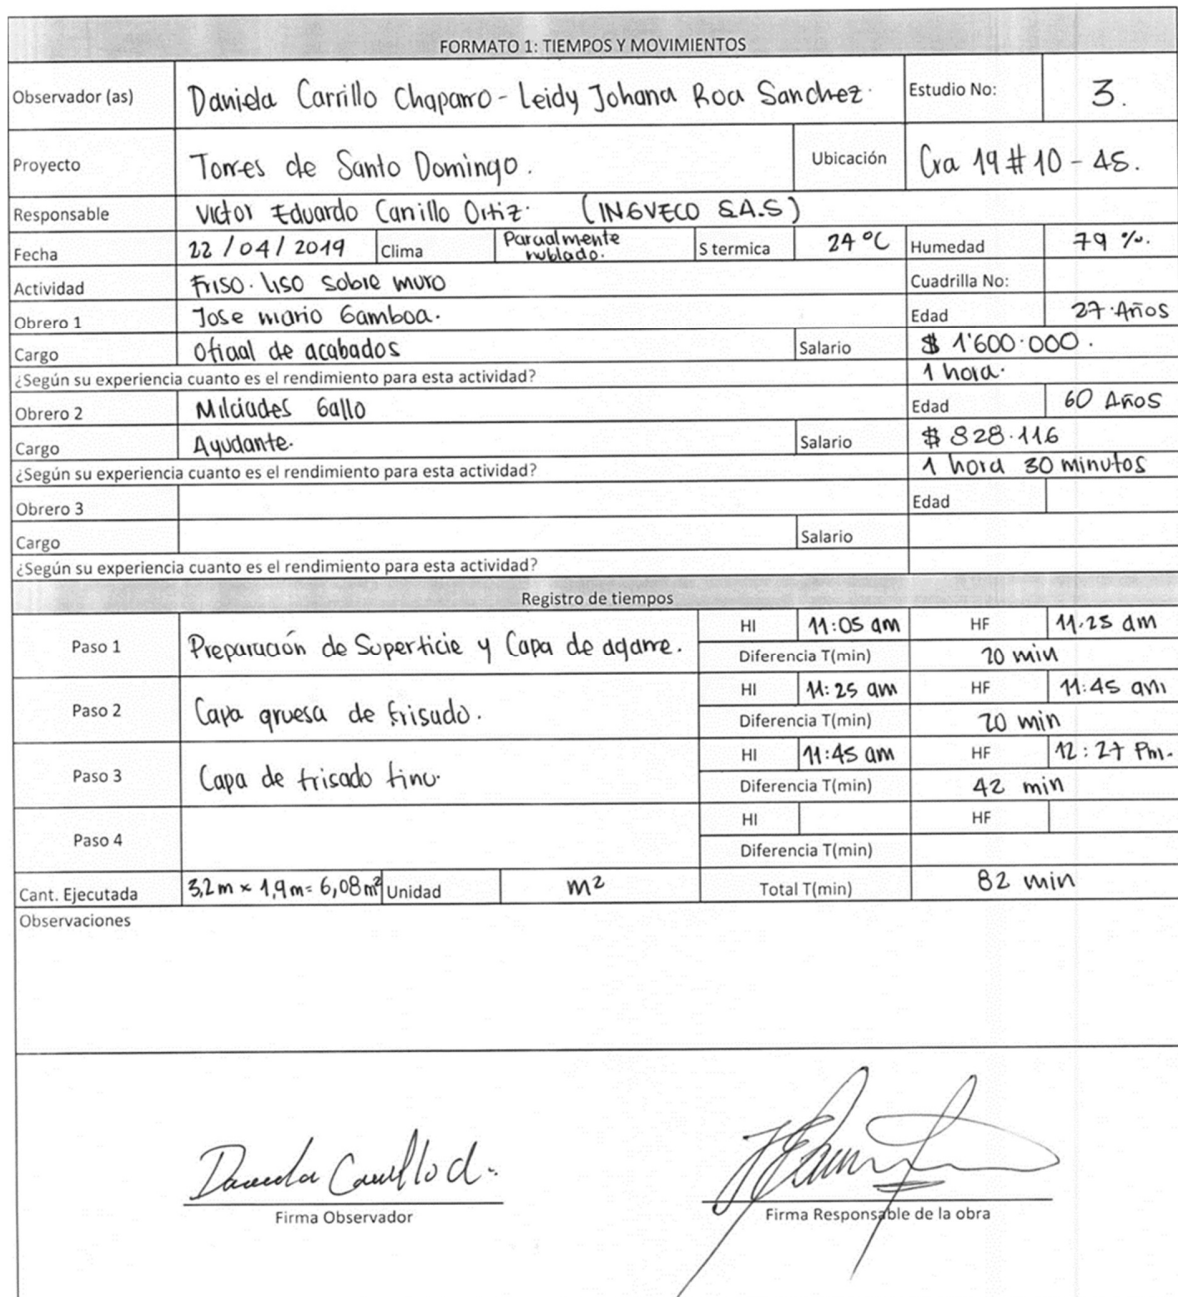 FORMATO 1: TIEMPOS Y MOVIMIENTOS
Observador (as) Daniela Carrillo Chaparro - Leidy Johana Roa Sanchez. Estudio No: 3.
Proyecto Torres de Santo Domingo. Ubicación Cra 19 # 10 - 45.
Responsable Victor Eduardo Carrillo Ortiz. (INGVECO S.A.S)
Fecha 22 / 04 / 2019 Clima Parcialmente nublado. S termica 24 °C Humedad 79 %.
Actividad Friso liso sobre muro Cuadrilla No:
Obrero 1 Jose mario Gamboa. Edad 27 Años
Cargo Oficial de acabados Salario $ 1'600.000.
¿Según su experiencia cuanto es el rendimiento para esta actividad? 1 hora.
Obrero 2 Milciades Gallo Edad 60 Años
Cargo Ayudante. Salario $ 828.116
¿Según su experiencia cuanto es el rendimiento para esta actividad? 1 hora 30 minutos
Obrero 3 Edad
Cargo Salario
¿Según su experiencia cuanto es el rendimiento para esta actividad?
Registro de tiempos
Paso 1 Preparación de Superficie y Capa de agarre. HI 11:05 am HF 11:25 am
Diferencia T(min) 20 min
Paso 2 Capa gruesa de frisado. HI 11:25 am HF 11:45 am
Diferencia T(min) 20 min
Paso 3 Capa de frisado fino. HI 11:45 am HF 12:27 Pm.
Diferencia T(min) 42 min
Paso 4 HI HF
Diferencia T(min)
Cant. Ejecutada 3,2 m × 1,9 m = 6,08 m² Unidad m² Total T(min) 82 min
Observaciones
Daniela Carrillo d.
Firma Observador Firma Responsable de la obra